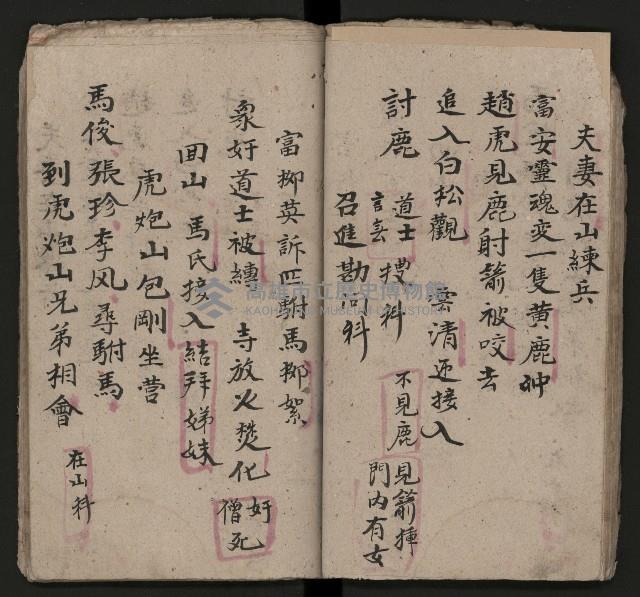 夫妻在山練兵
富安靈魂变一隻黃鹿冲
趙虎見鹿射箭被咬去
追入白松觀 雲清迎接入
討鹿 道士言無 搜科 不見鹿 見箭插門內有女
召進勘问科
富柳英訴 駙馬柳絮
衆奸道士被縛 寺放火焚化 奸僧死
回山 馬氏接入結拜娣妹
虎炮山包剛坐营
馬俊張珍李风尋駙馬
到虎炮山兄弟相會 在山科
高雄市立歷史博物館
KAOHSIUNG MUSEUM OF HISTORY